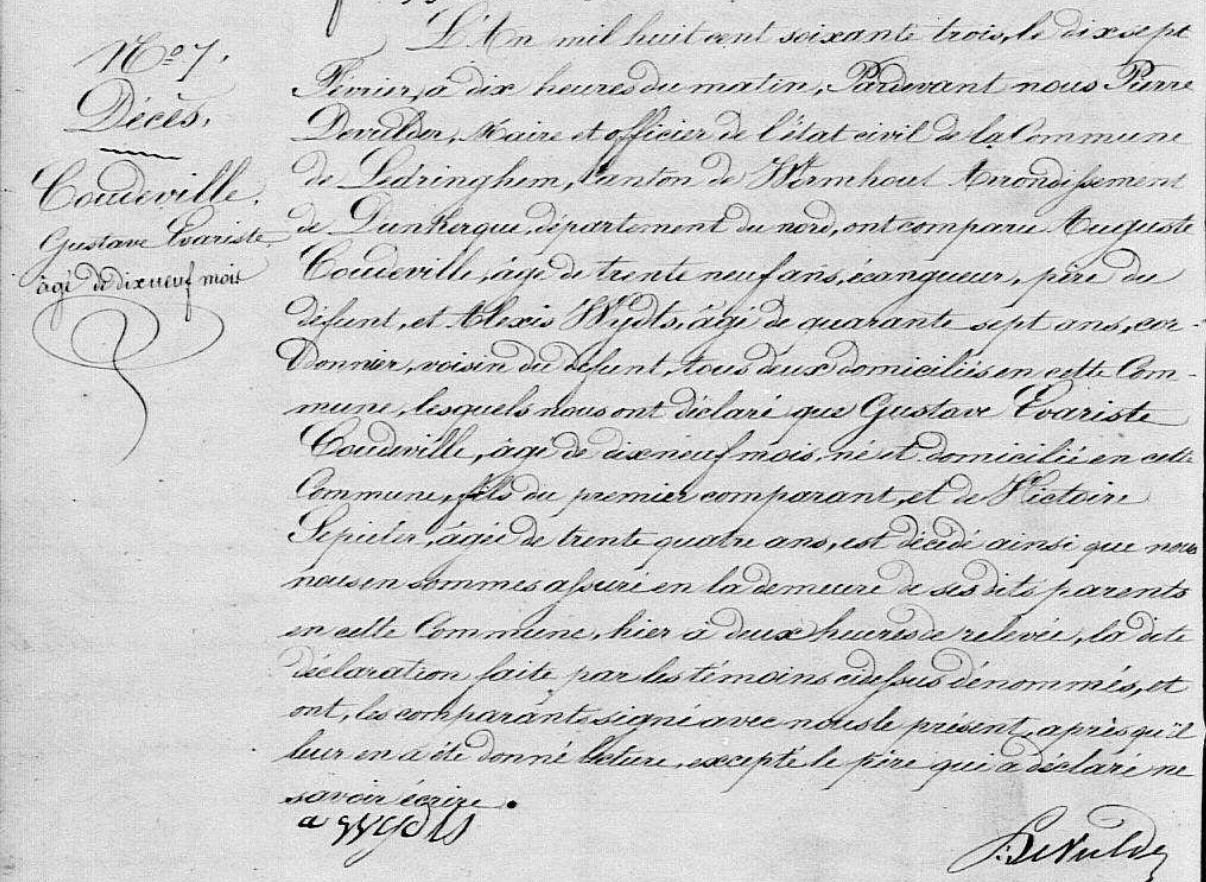 N.º 7.
Décès.
Coudeville,
Gustave Evariste
âgé de dix neuf mois
L'An mil huit cent soixante trois, le dix sept
Février, à dix heures du matin, Pardevant nous Pierre
Devulder, Maire et officier de l'état civil de la Commune
de Ledringhem, Canton de Wormhout Arrondissement
de Dunkerque, département du nord, ont comparu Auguste
Coudeville, âgé de trente neuf ans, écangueur, père du
défunt, et Alexis Wydts, âgé de quarante sept ans, cor-
donnier, voisin du défunt, tous deux domiciliés en cette Com-
mune, lesquels nous ont déclaré que Gustave Evariste
Coudeville, âgé de dix neuf mois, né et domicilié en cette
Commune, fils du premier comparant, et de Victoire
Sepieter, âgée de trente quatre ans, est décédé ainsi que nous
nous en sommes assuré en la demeure de ses dits parents
en cette Commune, hier à deux heures de relevée, la dite
déclaration faite par les témoins cidessus dénommés, et
ont, les comparants signé avec nous le présent, après qu'il
leur en a été donné lecture, excepté le père qui a déclaré ne
savoir écrire.
a Wydts
P. DeVulder